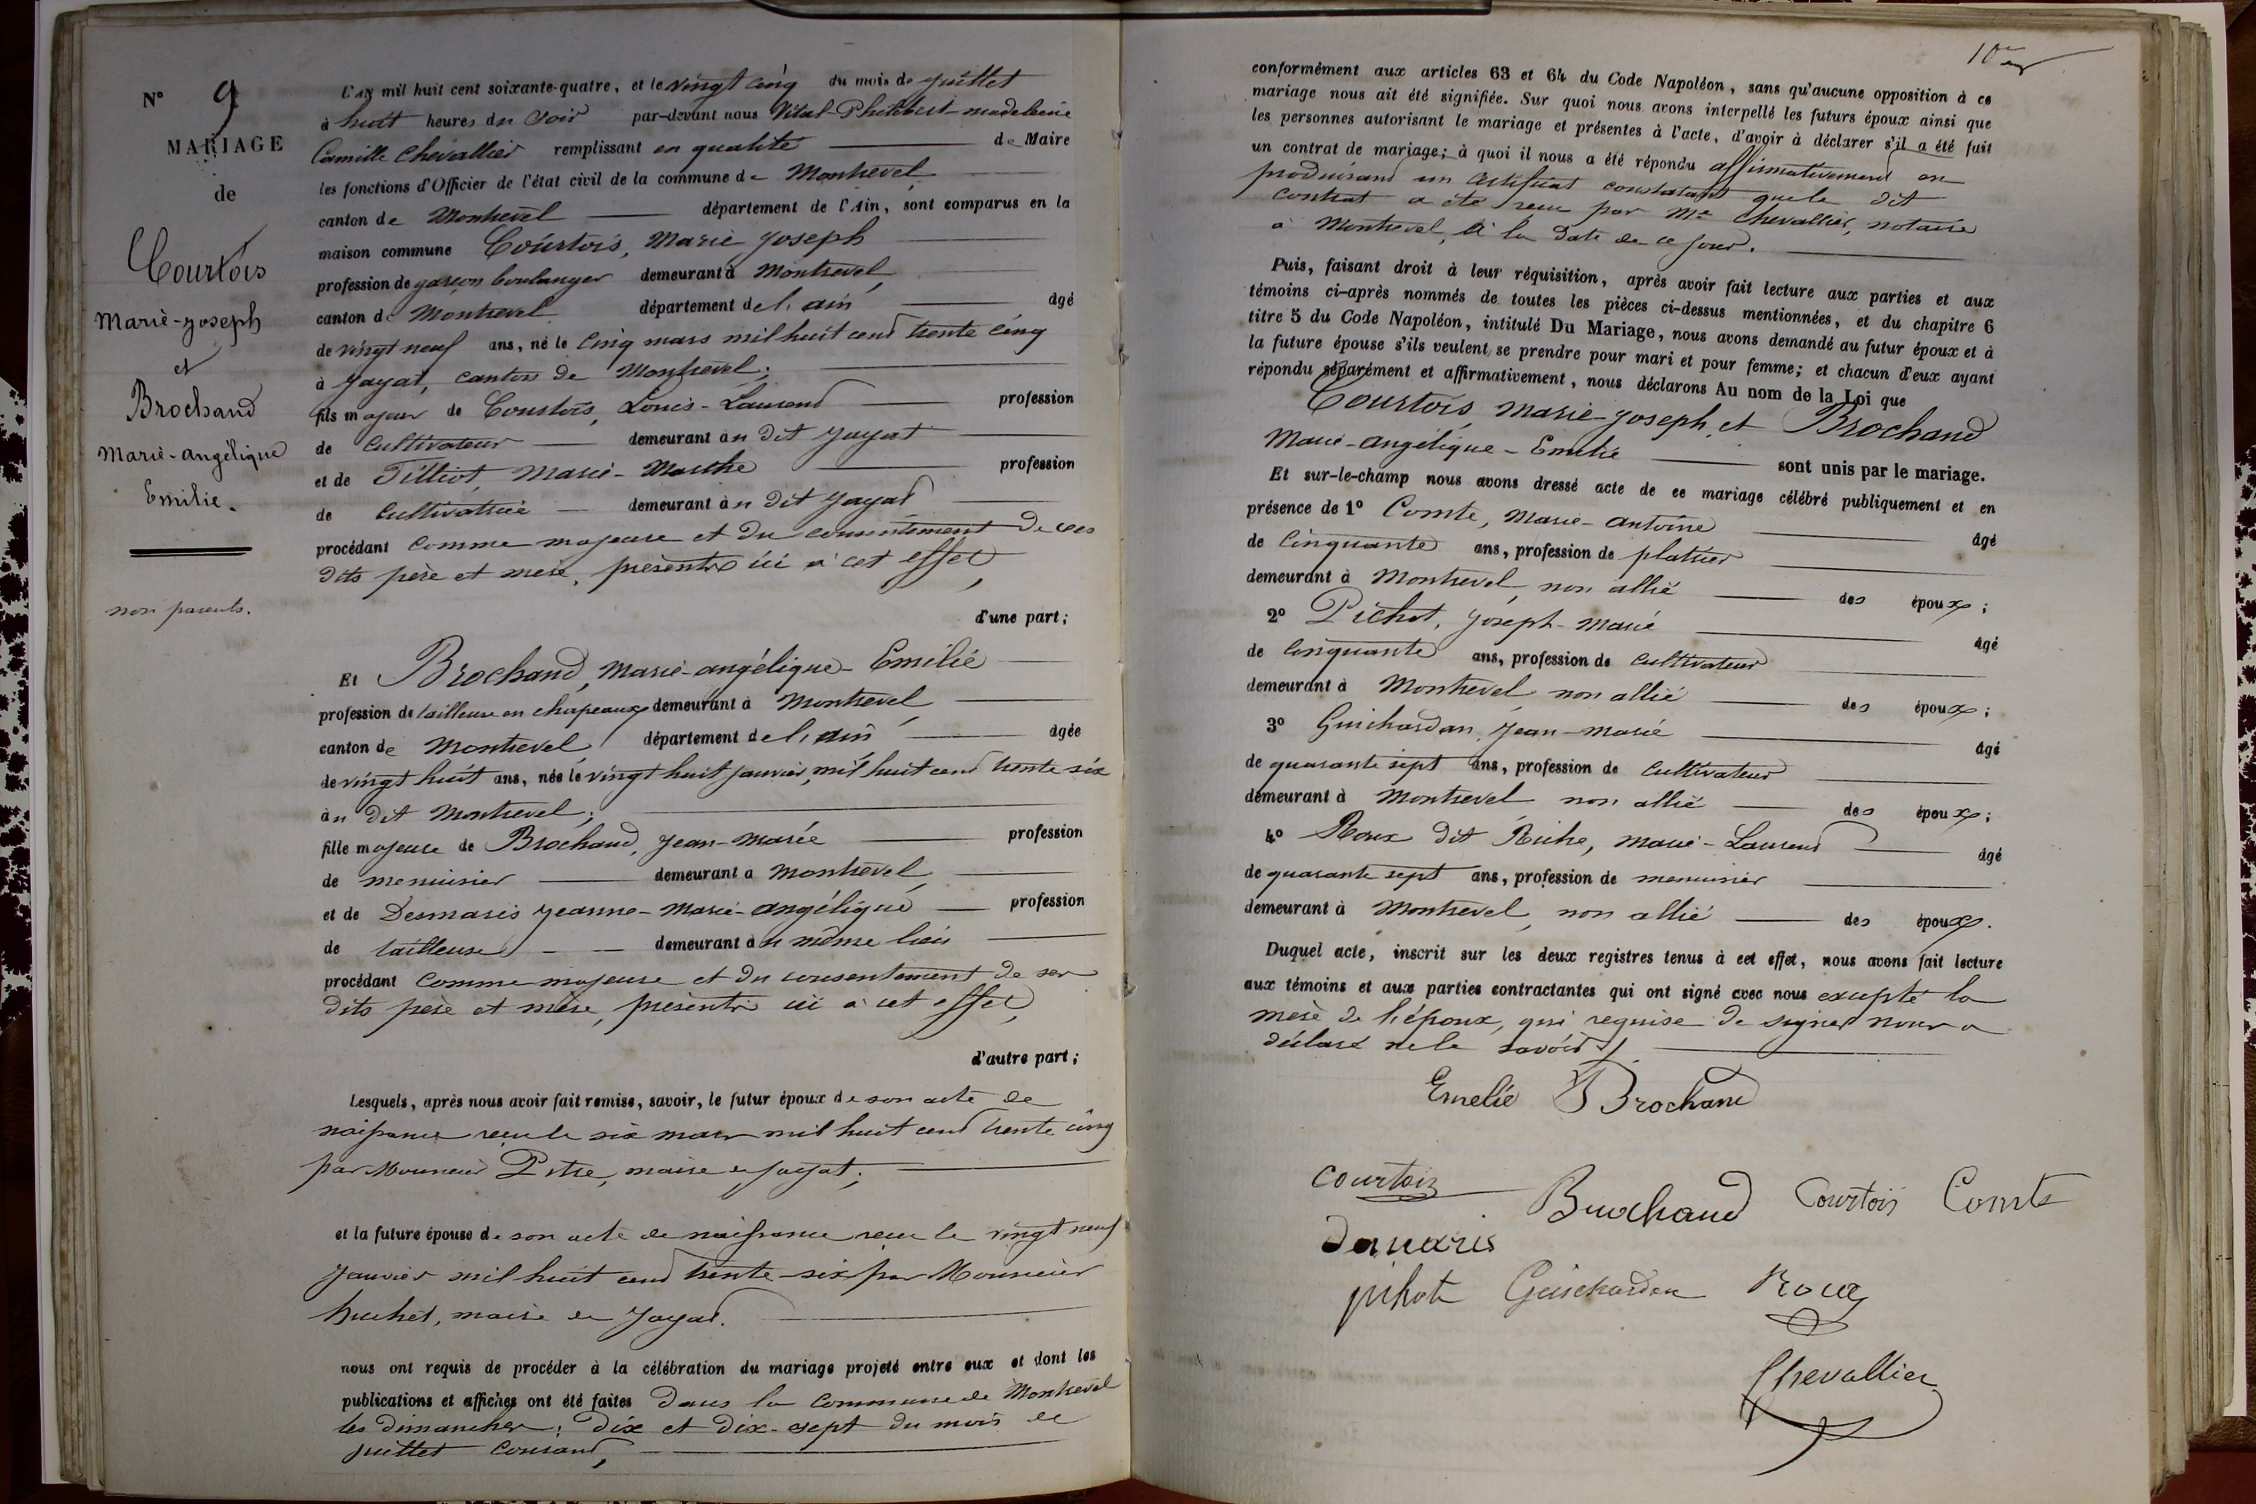 N° 9
MARIAGE
de
Courtois
Marie-Joseph
et
Brochand
Marie-angélique
Emilie.
non parents.
L'an mil huit cent soixante-quatre, et le vingt cinq du mois de juillet
à huit heures du soir par-devant nous Vital-Philibert-madeleine
Camille Chevallier remplissant en qualité de Maire
les fonctions d'Officier de l'état civil de la commune de Montrevel
canton de Montrevel département de l'Ain, sont comparus en la
maison commune Courtois, Marie Joseph
profession de garçon boulanger demeurant à Montrevel,
canton de Montrevel département de l'ain âgé
de vingt neuf ans, né le cinq mars mil huit cent trente cinq
à Jayat, canton de Montrevel;
fils majeur de Courtois, Louis-Laurent profession
de cultivateur demeurant au dit Jayat
et de Tilliot, Marie-Marthe profession
de cultivatrice demeurant au dit Jayat
procédant comme majeure et du consentement de ses
dits père et mère, présents ici à cet effet,
d'une part;
Et Brochand, Marie-angélique-Emilie
profession de tailleuse en chapeaux demeurant à Montrevel,
canton de Montrevel, département de l'ain âgée
de vingt huit ans, née le vingt huit janvier mil huit cent trente six
au dit Montrevel;
fille majeure de Brochand, Jean-Marie profession
de menuisier demeurant à Montrevel,
et de Desmaris Jeanne-Marie-angélique profession
de tailleuse demeurant au même lieu
procédant comme majeure et du consentement de ses
dits père et mère, présents ici à cet effet,
d'autre part;
Lesquels, après nous avoir fait remise, savoir, le futur époux de son acte de
naissance reçu le six mars mil huit cent trente cinq
par Monsieur Pitre, maire de Jayat;
et la future épouse de son acte de naissance reçu le vingt neuf
janvier mil huit cent trente-six par Monsieur
huchet, maire de Jayat.
nous ont requis de procéder à la célébration du mariage projeté entre eux et dont les
publications et affiches ont été faites dans la commune de Montrevel
les dimanches: dix et dix-sept du mois de
juillet courant,
10
conformément aux articles 63 et 64 du Code Napoléon, sans qu'aucune opposition à ce
mariage nous ait été signifiée. Sur quoi nous avons interpellé les futurs époux ainsi que
les personnes autorisant le mariage et présentes à l'acte, d'avoir à déclarer s'il a été fait
un contrat de mariage; à quoi il nous a été répondu affirmativement en
produisant un certificat constatant que le dit
contrat a été reçu par Me Chevallier, notaire
à Montrevel, à la date de ce jour.
Puis, faisant droit à leur réquisition, après avoir fait lecture aux parties et aux
témoins ci-après nommés de toutes les pièces ci-dessus mentionnées, et du chapitre 6
titre 5 du Code Napoléon, intitulé Du Mariage, nous avons demandé au futur époux et à
la future épouse s'ils veulent se prendre pour mari et pour femme; et chacun d'eux ayant
répondu séparément et affirmativement, nous déclarons Au nom de la Loi que
Courtois, Marie-Joseph, et Brochand
Marie-angélique-Emilie sont unis par le mariage.
Et sur-le-champ nous avons dressé acte de ce mariage célébré publiquement et en
présence de 1° Comte, Marie-antoine âgé
de cinquante ans, profession de platrier
demeurant à Montrevel, non allié des époux;
2° Pichot, Joseph-Marie âgé
de cinquante ans, profession de cultivateur
demeurant à Montrevel non allié des époux;
3° Guichardan, Jean-Marie âgé
de quarante sept ans, profession de cultivateur
demeurant à Montrevel non allié des époux;
4° Roux dit Riche, Marie-Laurent âgé
de quarante sept ans, profession de menuisier
demeurant à Montrevel, non allié des époux.
Duquel acte, inscrit sur les deux registres tenus à cet effet, nous avons fait lecture
aux témoins et aux parties contractantes qui ont signé avec nous excepté la
mère de l'époux, qui requise de signer nous a
déclaré ne le savoir
Emelie Brochand
Courtois Brochand Courtois Comte
Damaris
pichot Guichardan Roux
Chevallier